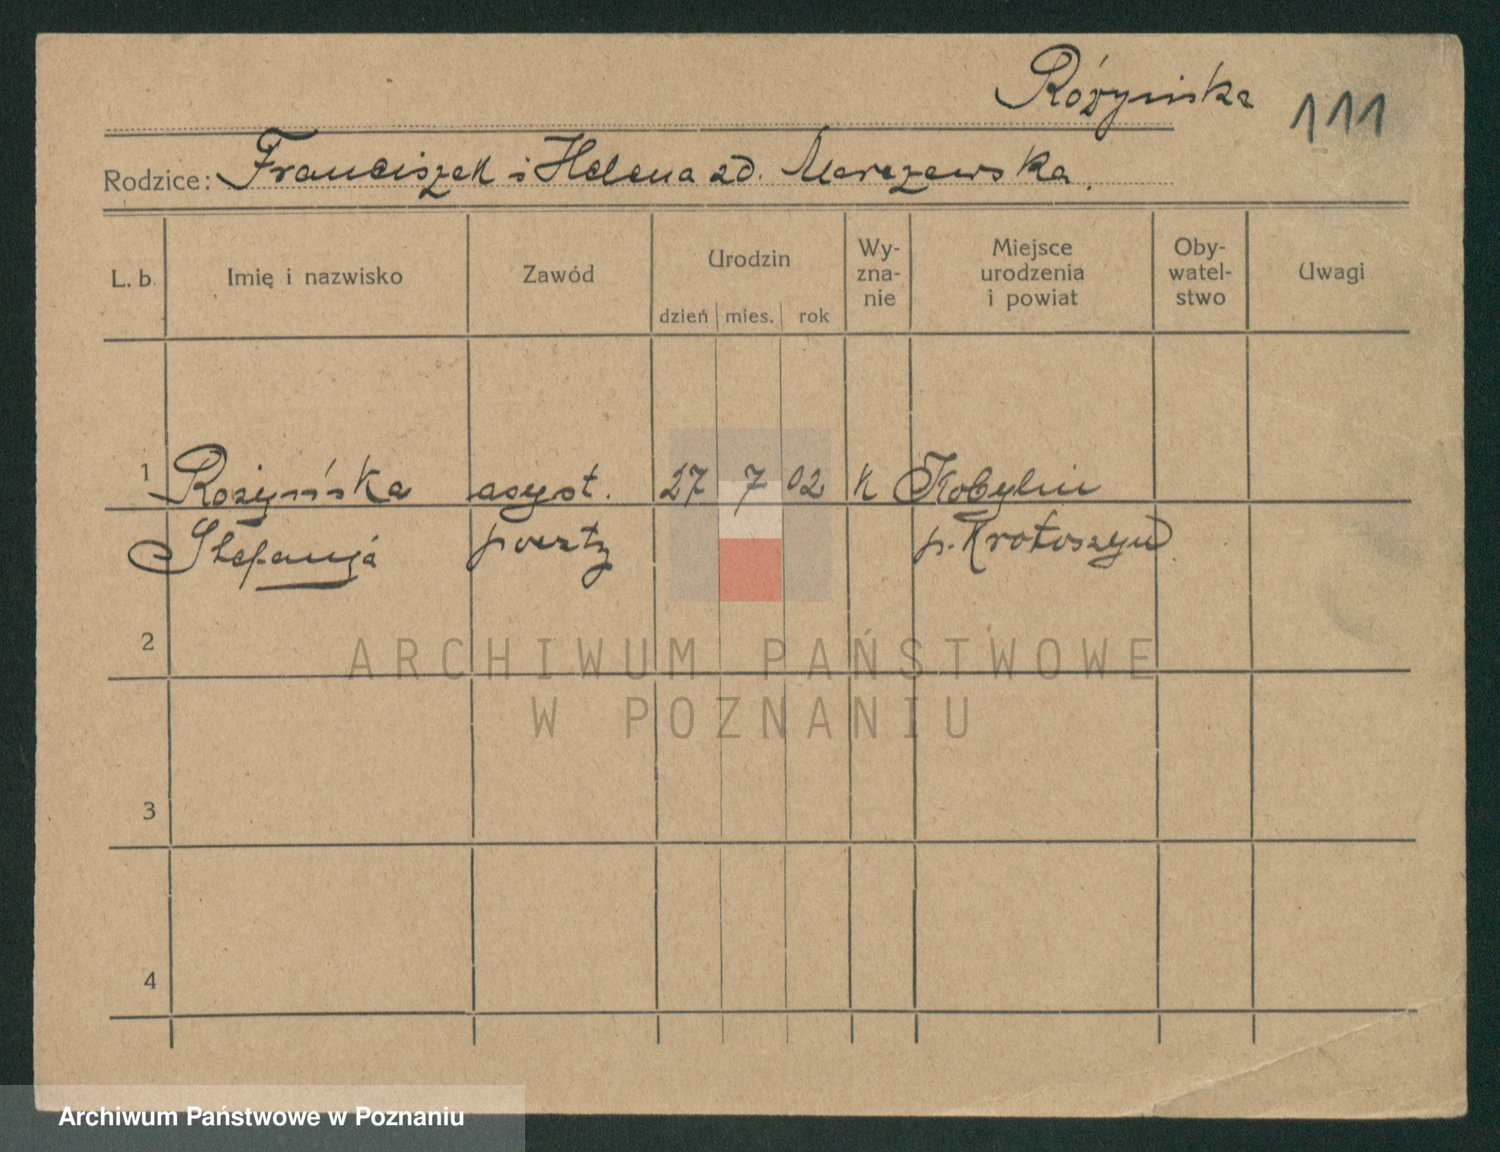 Różyńska 111
Rodzice: Franciszek i Helena zd. Marczewska.
L. b. Imię i nazwisko Zawód Urodzin Wy-zna-nie Miejsce urodzenia i powiat Oby-watel-stwo Uwagi
dzień mies. rok
1 Rożyńska asyst. 27 7 02 k Kobylin
Stefanja poczty p. Krotoszyn
2
ARCHIWUM PAŃSTWOWE
W POZNANIU
3
4
Archiwum Państwowe w Poznaniu